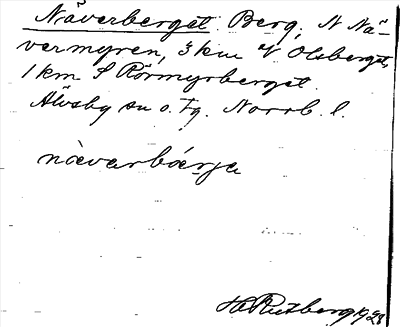 Näverberget Berg, N Nä-
vermyren, 3 km V Olsberget,
1 km S Rörmyrberget.
Älvsby sn o. tg. Norrb. l.
nàvarbárja
H. Rutberg 1928